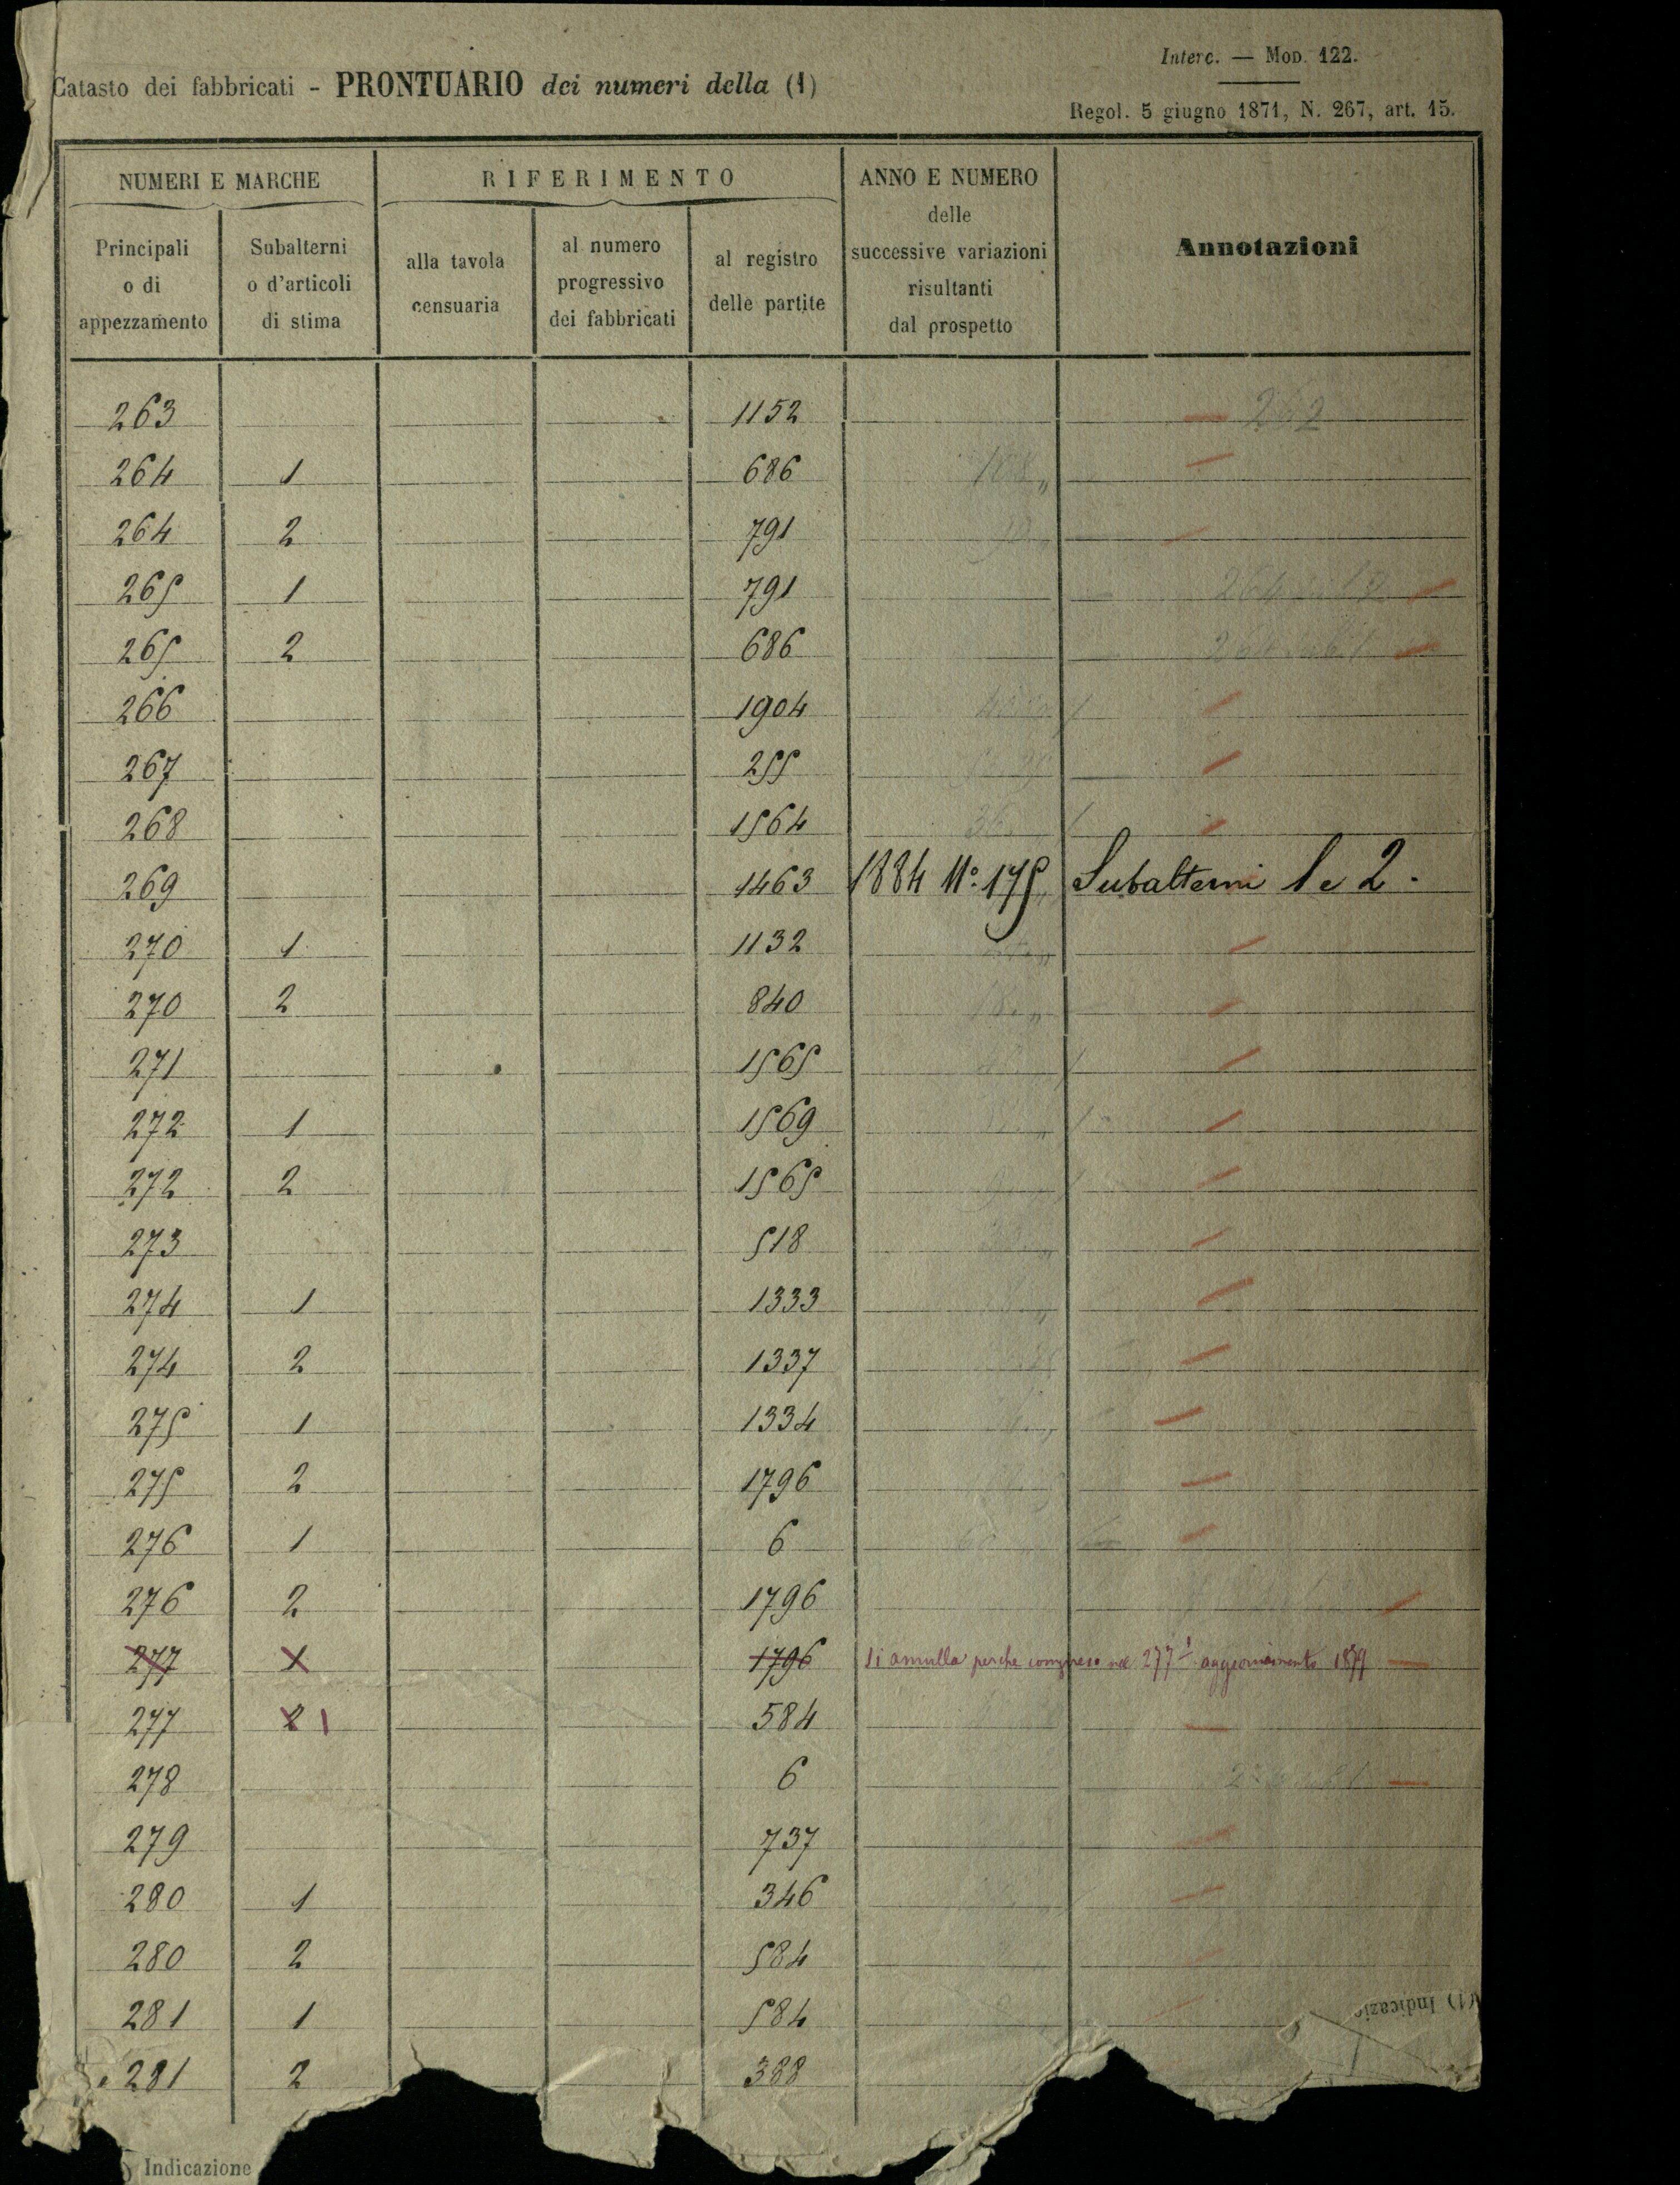 Interc. — Mod. 122.
Catasto dei fabbricati - PRONTUARIO dei numeri della (1)
Regol. 5 giugno 1871, N. 267, art. 15.
NUMERI E MARCHE RIFERIMENTO ANNO E NUMERO delle successive variazioni risultanti dal prospetto Annotazioni
Principali o di appezzamento Subalterni o d'articoli di stima alla tavola censuaria al numero progressivo dei fabbricati al registro delle partite
263 1152 262
264 1 686
264 2 791
265 1 791
265 2 686
266 1904
267 255
268 1564
269 1463 1884 N.º 175 Subalterni 1 e 2.
270 1 1132
270 2 840
271 1565
272 1 1569
272 2 1565
273 518
274 1 1333
274 2 1337
275 1 1334
275 2 1796
276 1 6
276 2 1796
277 1 1796 Si annulla perche compreso nel 277 1 aggiornamento 1879
277 2 1 584
278 6
279 737
280 1 346
280 2 584
281 1 584
281 2 388
(1) Indicazio
) Indicazione